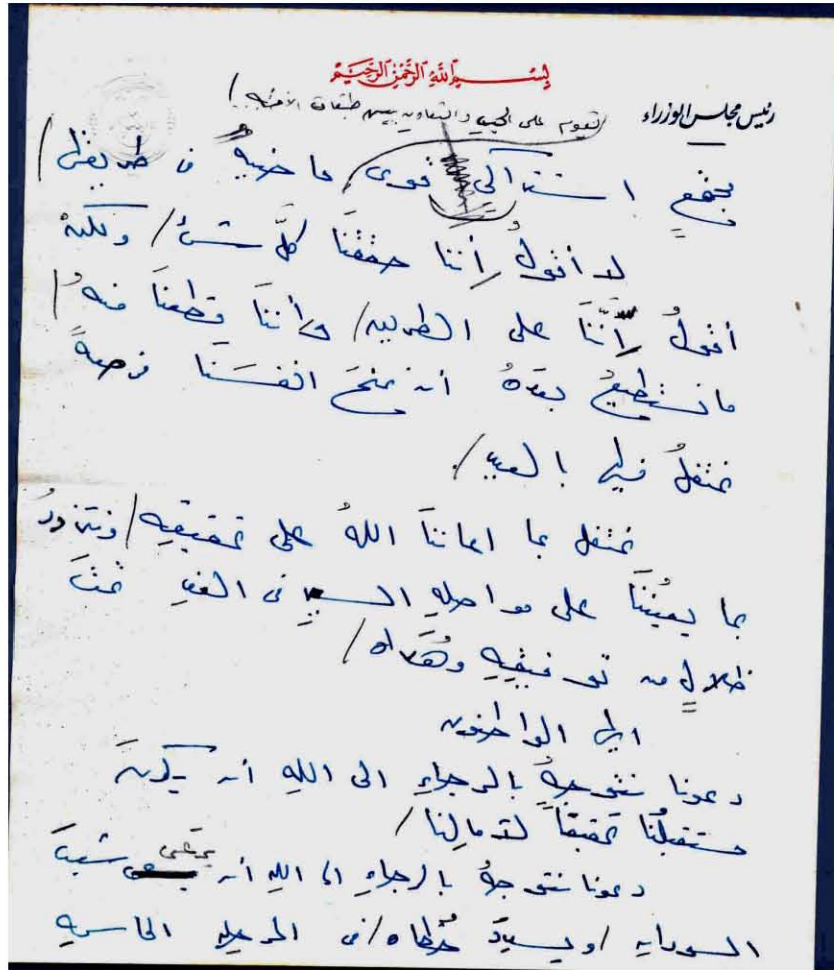 بسم الله الرحمن الرحيم
رئيس مجلس الوزراء
تقوم على الحب والتعاون بين طبقات الأمة /
اشتراكي قوى ماضية في طريقها /
لا أقولُ أننا حققنا كلَّ شئ / ولكنه
أقولُ إنّنا على الطريق / وأننا قطعنا منهُ /
ما نستطيعُ بعدهُ أن نمنحَ انفسَنا فرصةً
نحتفلُ فيها بالعيد /.
نحتفل بما اعاننا اللهُ على تحقيقه / ونتزودُ
بما يعيننا على مواصلةِ السيرِ فى الغدِ تحتَ
ظلالٍ من توفيقِهِ وهُداه /
ايها المواطنون
دعونا نتوجهُ بالرجاءِ الى اللهِ أن يكونَ
مستقبلُنا تحقيقاً لآمالِنا /
دعونا نتوجهُ بالرجاءِ الى اللهِ أن يرعى شعبَ
السودان / ويسددَ خُطاه / فى المرحلةِ الحاسمةِ